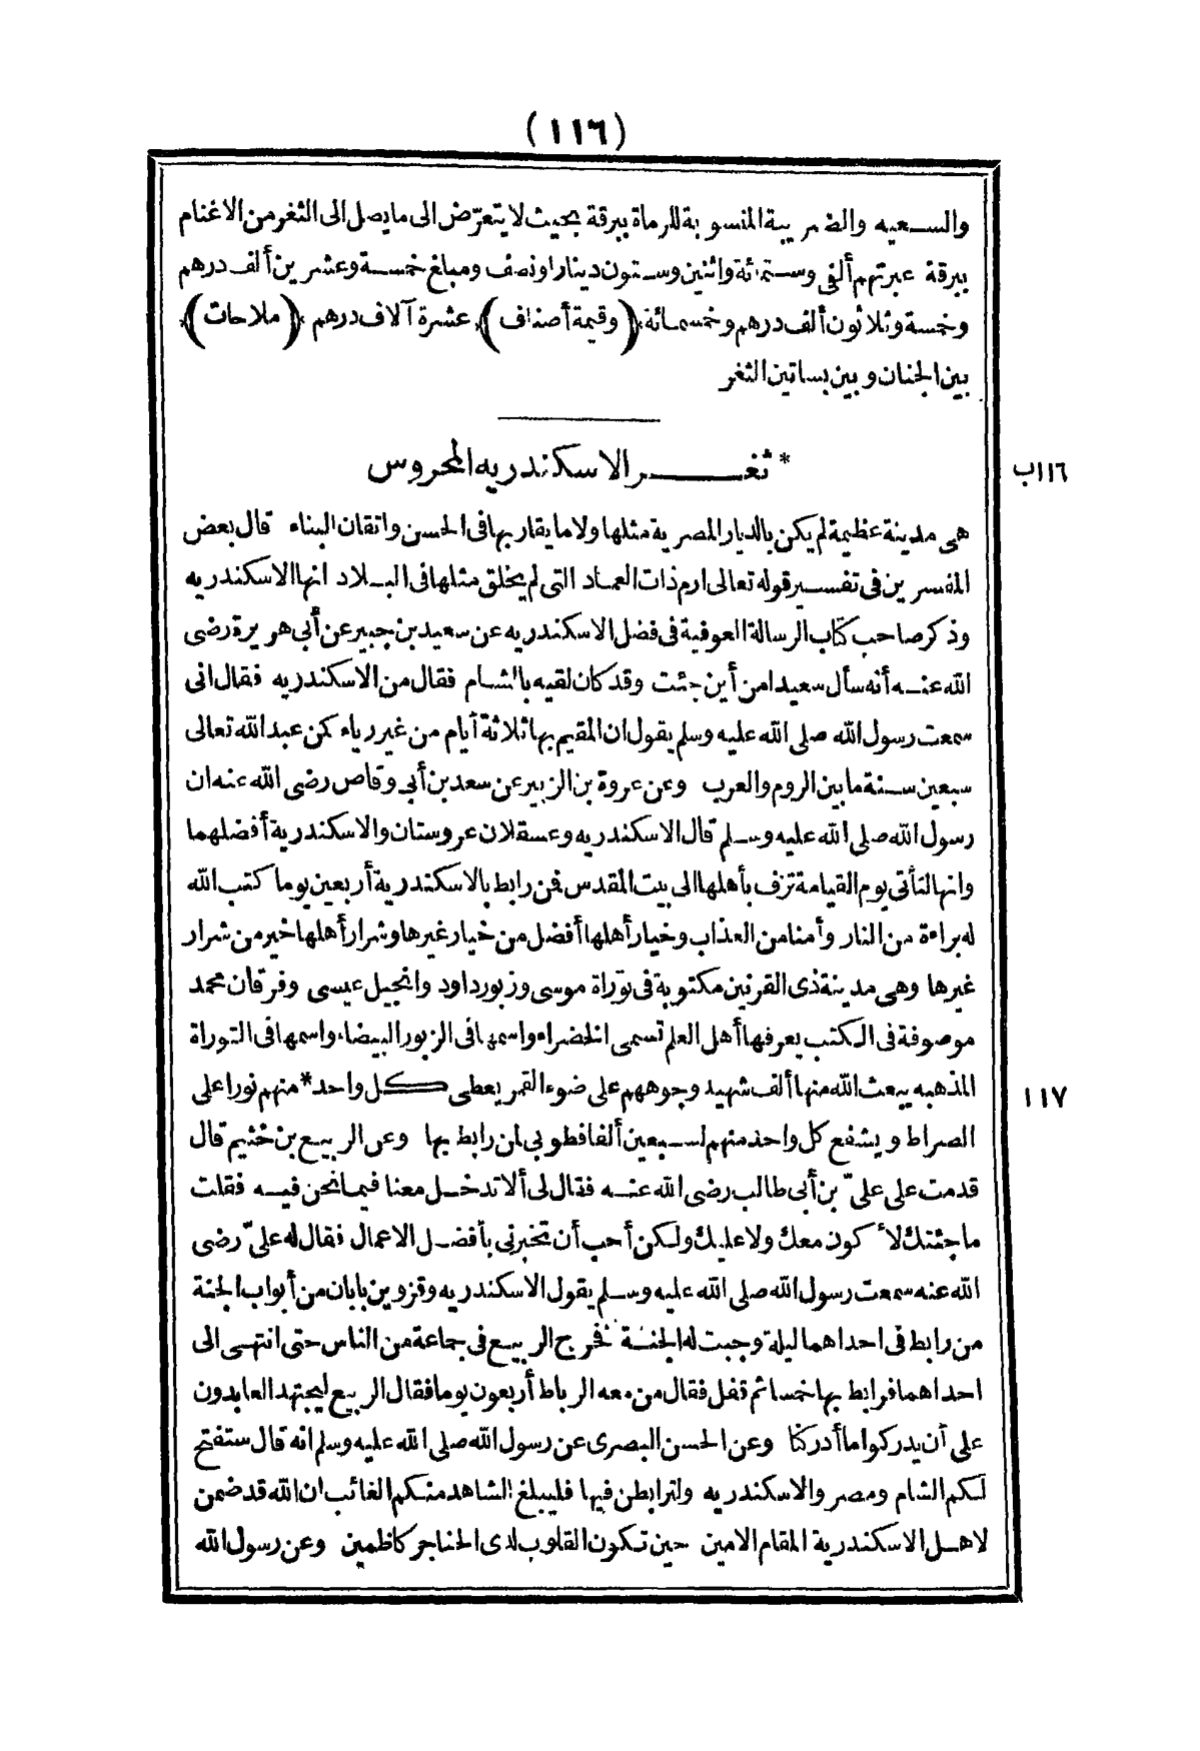 (١١٦)
والسعيه والضريبة المنسوبة للرماة ببرقة بحيث لا يتعرّض الى ما يصل الى الثغر من الاغنام
ببرقة عبرتهم ألفى وستمائة واثنين وستون دينارا ونصف ومبلغ خمسة وعشرين ألف درهم
وخمسة وثلاثون ألف درهم وخمسمائة (وقيمة أصناف) عشرة آلاف درهم (ملاحات)
بين الجنان وبين بساتين الثغر
* ثغر الاسكندريه المحروس
١١٦ب
هى مدينة عظيمة لم يكن بالديار المصرية مثلها ولا ما يقاربها فى الحسن واتقان البناء قال بعض
المفسرين فى تفسير قوله تعالى ارم ذات العماد التى لم يخلق مثلها فى البلاد انها الاسكندريه
وذكر صاحب كتاب الرسالة العوفية فى فضل الاسكندريه عن سعيد بن جبير عن أبى هريرة رضى
الله عنه أنه سأل سعيدا من أين جئت وقد كان لقيه بالشام فقال من الاسكندريه فقال انى
سمعت رسول الله صلى الله عليه وسلم يقول ان المقيم بها ثلاثة أيام من غير رياء كمن عبد الله تعالى
سبعين سنة ما بين الروم والعرب وعن عروة بن الزبير عن سعد بن أبى وقاص رضى الله عنه ان
رسول الله صلى الله عليه وسلم قال الاسكندريه وعسقلان عروستان والاسكندرية أفضلهما
وانها لتأتى يوم القيامة تزف بأهلها الى بيت المقدس فمن رابط بالاسكندرية أربعين يوما كتب الله
له براءة من النار وأمنا من العذاب وخيار أهلها أفضل من خيار غيرها وشرار أهلها خير من شرار
غيرها وهى مدينة ذى القرنين مكتوبة فى توراة موسى وزبور داود وانجيل عيسى وفرقان محمد
موصوفة فى الكتب يعرفها أهل العلم تسمى الخضراء واسمها فى الزبور البيضاء واسمها فى التوراة
المذهبه يبعث الله منها ألف شهيد وجوههم على ضوء القمر يعطى كل واحد * منهم نورا على
١١٧
الصراط ويشفع كل واحد منهم لسبعين ألفا فطوبى لمن رابط بها وعن الربيع بن خثيم قال
قدمت على علىّ بن أبى طالب رضى الله عنه فقال لى ألا تدخل معنا فيما نحن فيه فقلت
ما جئتك لأكون معك ولا عليك ولكن أحب أن تخبرنى بأفضل الاعمال فقال له علىّ رضى
الله عنه سمعت رسول الله صلى الله عليه وسلم يقول الاسكندريه وقزوين بابان من أبواب الجنة
من رابط فى احداهما ليلة وجبت له الجنة فخرج الربيع فى جماعة من الناس حتى انتهى الى
احداهما فرابط بها خمسا ثم قفل فقال من معه الرباط أربعون يوما فقال الربيع ليجتهد العابدون
على أن يدركوا ما أدركنا وعن الحسن البصرى عن رسول الله صلى الله عليه وسلم انه قال ستفتح
لكم الشام ومصر والاسكندريه ولترابطن فيها فليبلغ الشاهد منكم الغائب ان الله قد ضمن
لاهل الاسكندرية المقام الامين حين تكون القلوب لدى الحناجر كاظمين وعن رسول الله